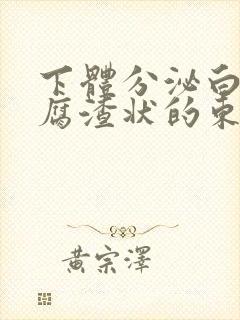 下體分泌白
腐渣状的東
黃宗澤